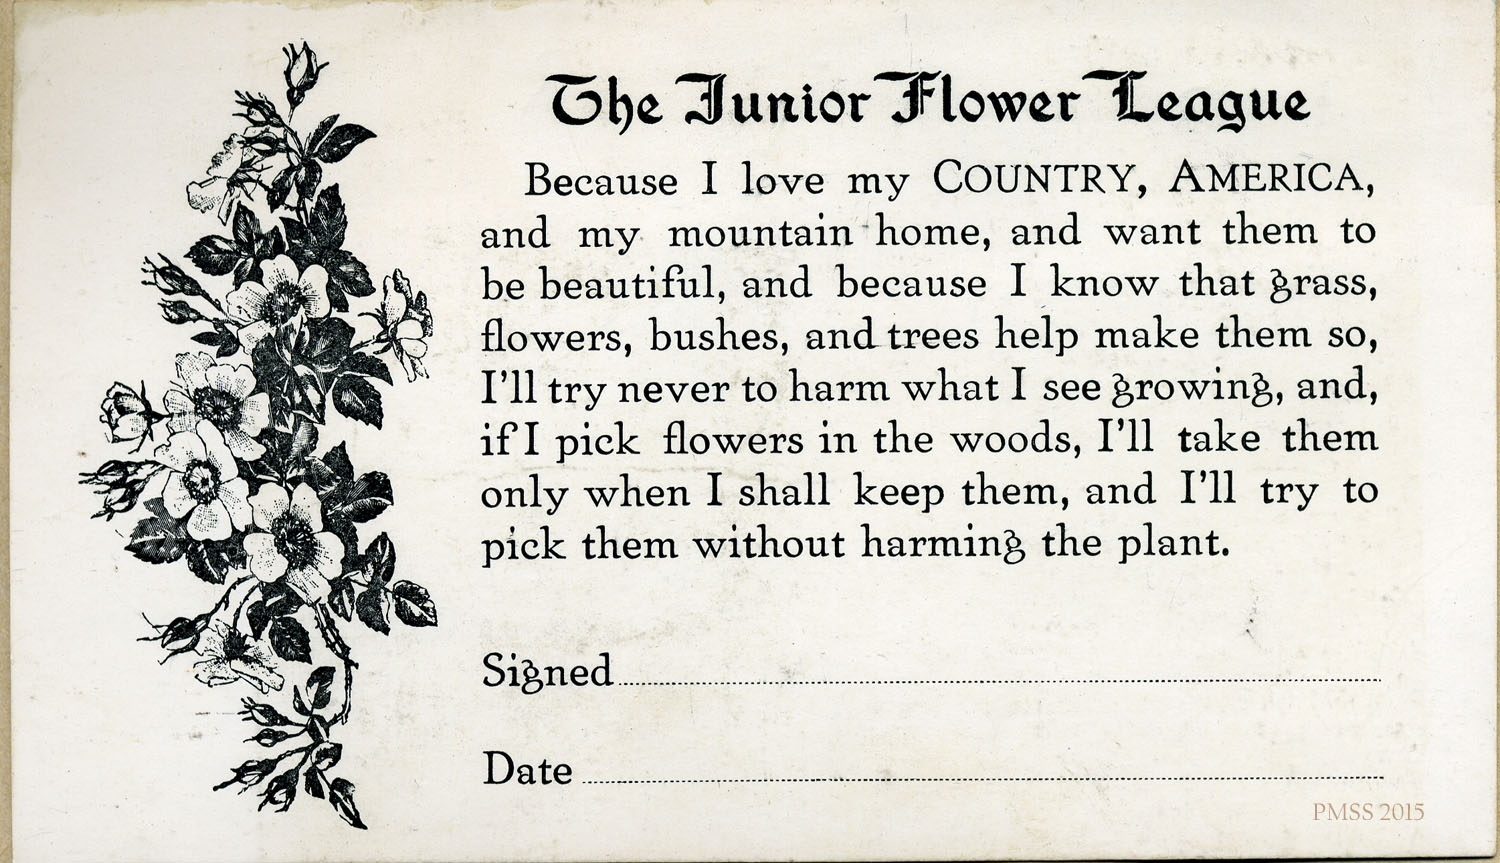 The Junior Flower League
Because I love my COUNTRY, AMERICA,
and my mountain home, and want them to
be beautiful, and because I know that grass,
flowers, bushes, and trees help make them so,
I'll try never to harm what I see growing, and,
if I pick flowers in the woods, I'll take them
only when I shall keep them, and I'll try to
pick them without harming the plant.
Signed
Date
PMSS 2015